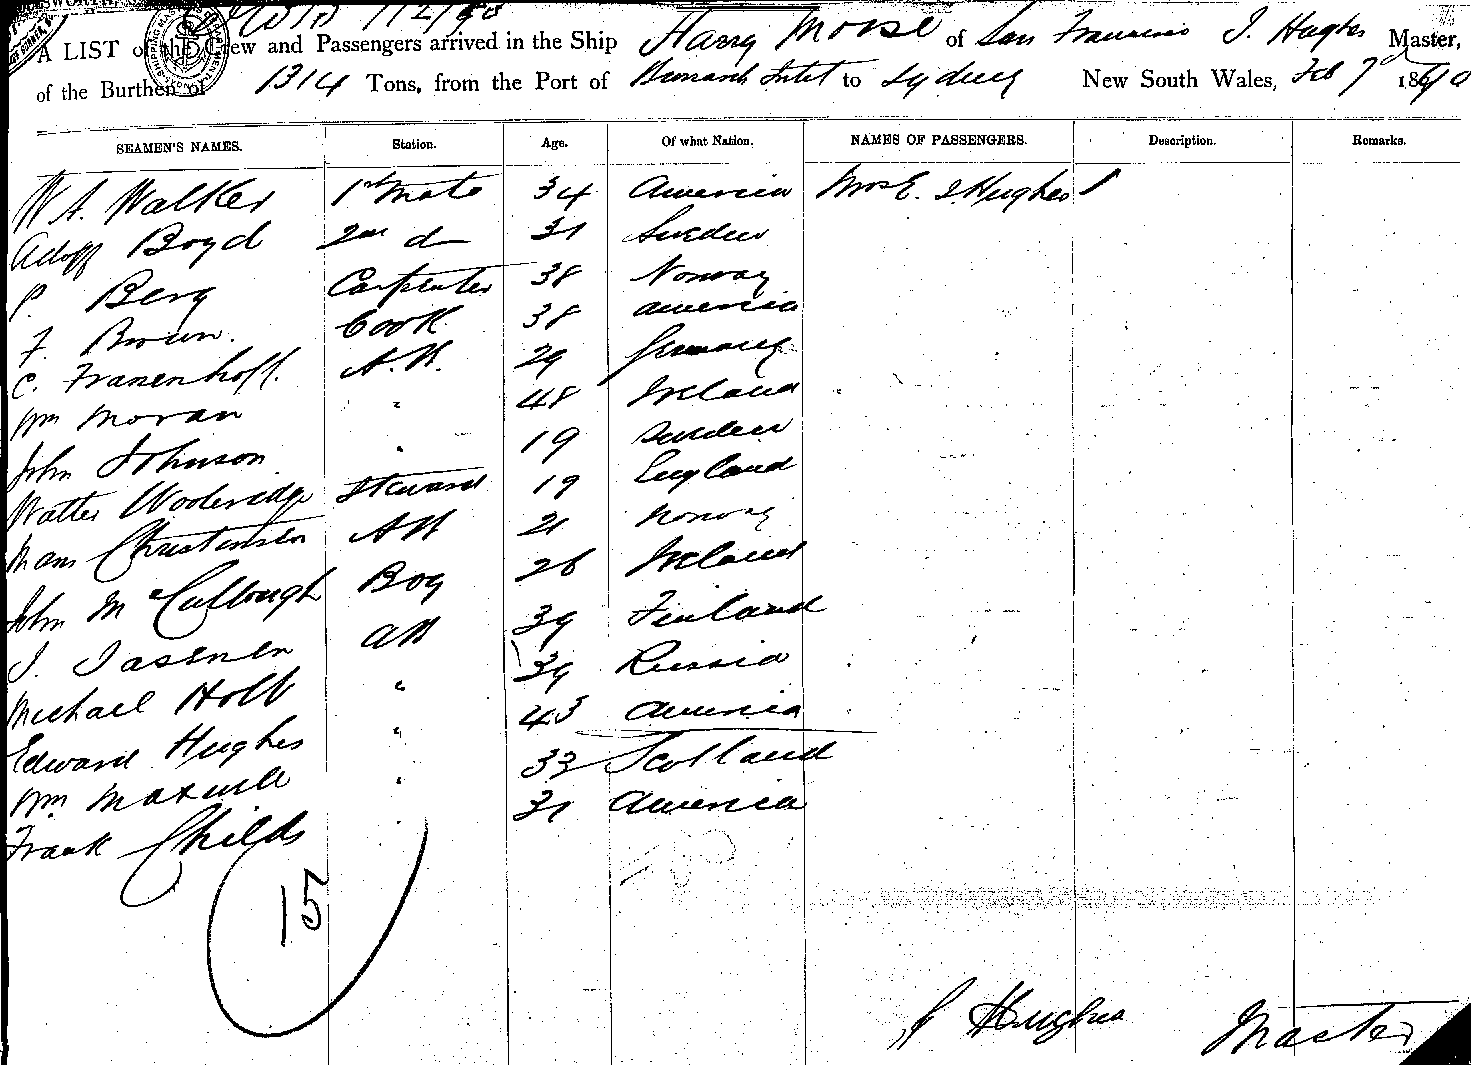 A LIST of the Crew and Passengers arrived in the Ship Harry Morse of San Francisco J. Hughes Master,
of the Burthen of 1314 Tons, from the Port of Burrard Inlet to Sydney New South Wales, Feb 7 1890
SEAMEN'S NAMES. Station. Age. Of what Nation. NAMES OF PASSENGERS. Description. Remarks.
W A. Walker 1st Mate 34 America Mrs E. J. Hughes 1
Adolf Boyd 2nd do 31 Sweden
P. Berg Carpenter 38 Norway
F. Brown. Cook 38 America
C. Franenhoff. A.B. 29 Germany
Wm Moran " 48 Ireland
John Johnson " 19 Sweden
Walter Wooleridge Steward 19 England
Hans Christensen AB 21 Norway
John McCullough Boy 26 Ireland
J. Jasenen AB 39 Finland
Michael Holb " 39 Russia
Edward Hughes " 43 America
Wm. Maxwell " 33 Scotland
Frank Childs 31 America
15
J Hughes Master